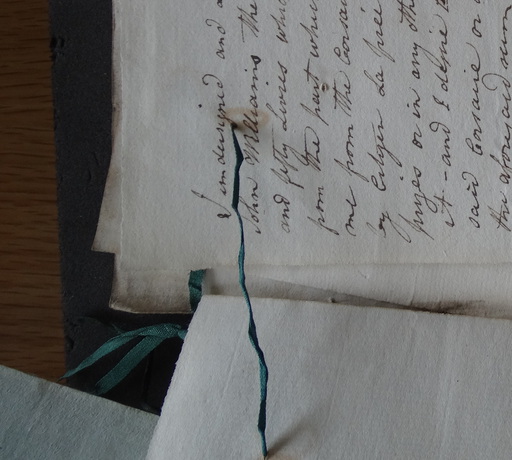 I undersigned and a
John Williams the
and fifty livres whi
from the part whi
me from the Corsair
by Citizen La
prizes or in any oth
it - and I desire
said Corsaire or
the aforesaid sum